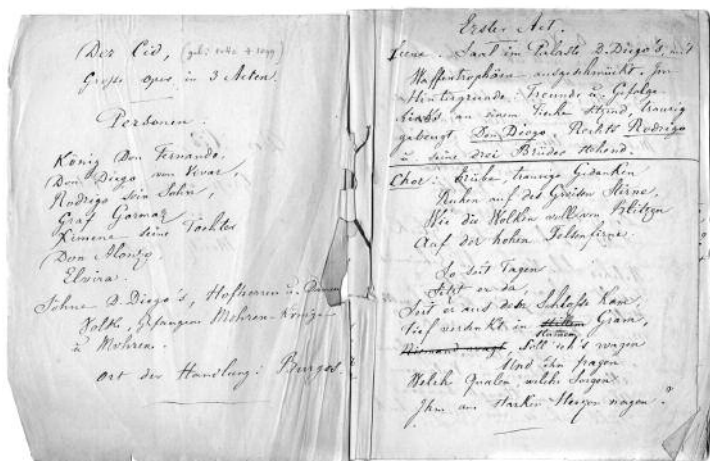 Der Cid, (geb: 1040 + 1099)
Große Oper in 3 Acten.
Personen.
König Don Fernando.
Don Diego von Vivar,
Rodrigo sein Sohn,
Graf Gormaz
Ximene seine Tochter
Don Alonzo.
Elvira.
Söhne D. Diego's, Hofherren u. Damen
Volk, gefangene Mohren-Könige
u Mohren.
Ort der Handlung: Burgos.
Erster Act.
Scene. Saal im Palaste D. Diego's, mit
Waffentrophäen ausgeschmückt. Im
Hintergrunde: Freunde u. Gefolge
links an einem Tische sitzend, traurig
gebeugt, Don Diego. Rechts Rodrigo
u seine drei Brüder stehend.
Chor: Trübe traurige Gedanken
Ruhen auf des Greisen Stirne,
Wie die Wolken voll von Blitzen
Auf der hohen Felsenfirne.
So seit Tagen
Sitzt er da,
Seit er aus dem Schloße kam,
Tief versenkt in stillen Gram,
Niemand wagt, Soll ich's wagen
Und ihn fragen
Welch Qualen, welche Sorgen
Ihm am starken Herzen nagen?